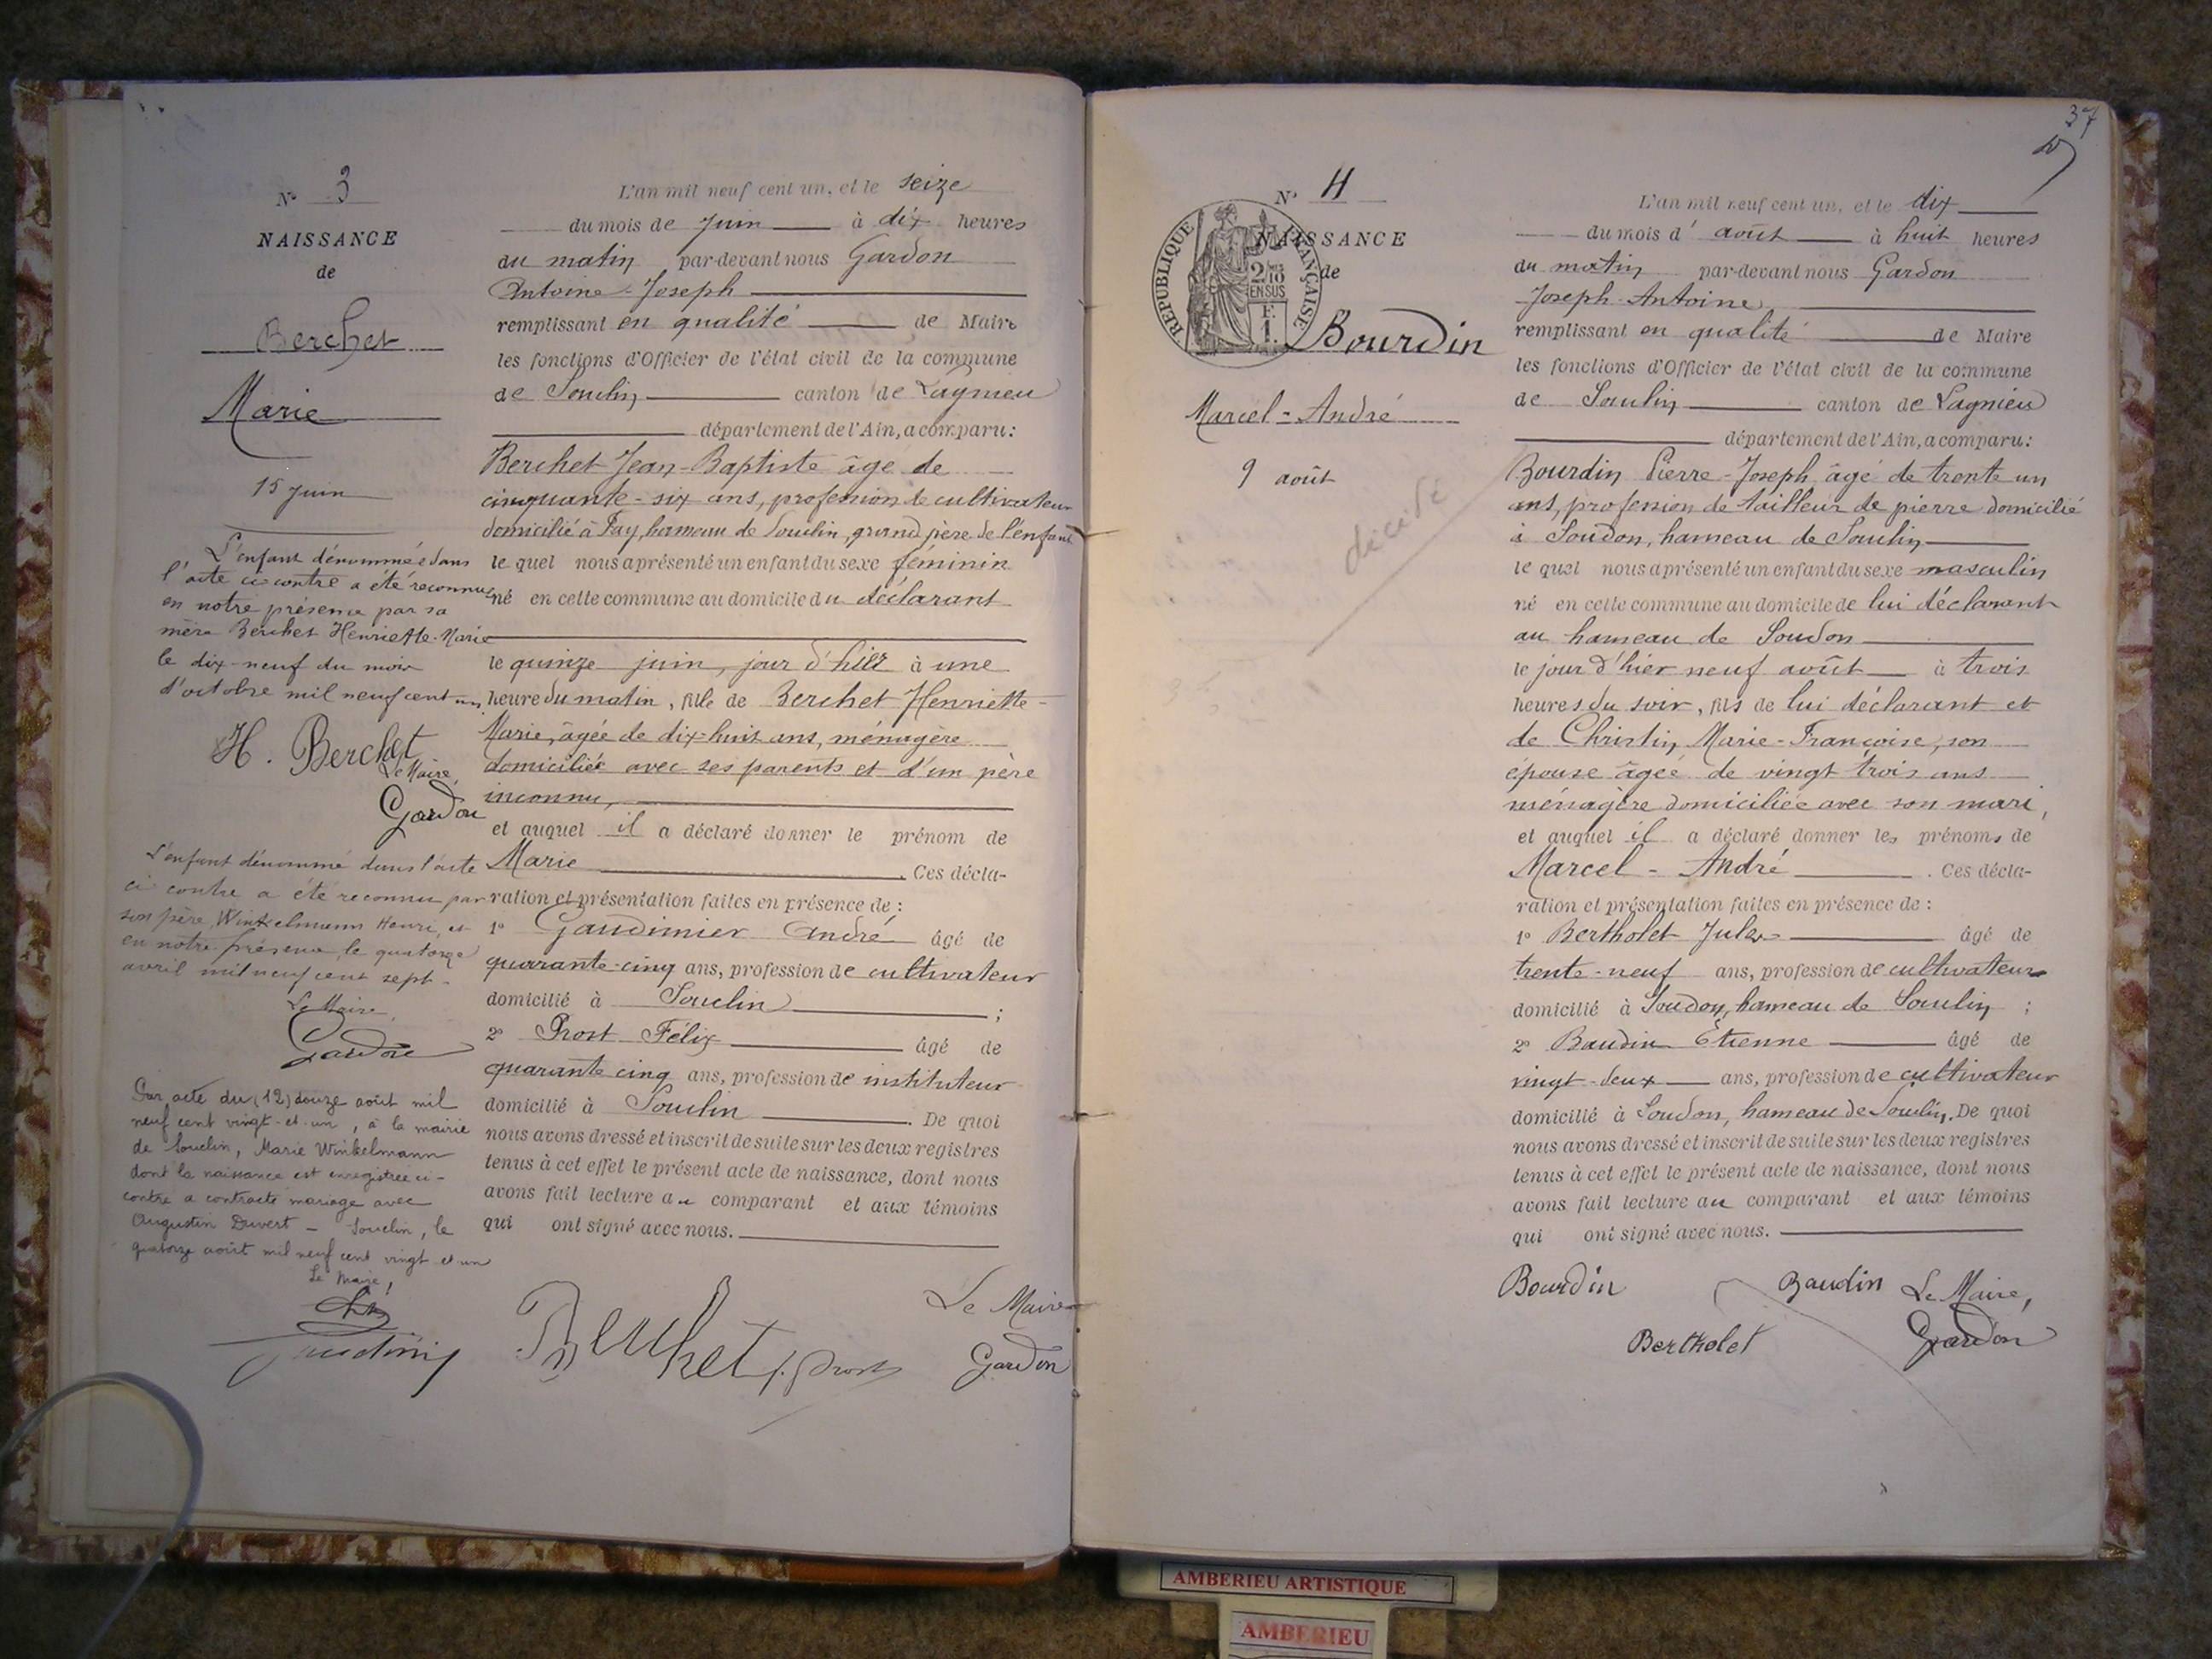 N° 3
NAISSANCE
de
Berchet
Marie
15 Juin
L'enfant dénommée dans
l'acte ci-contre a été reconnue
en notre présence par sa
mère Berchet Henriette-Marie
le dix-neuf du mois
d'octobre mil neuf cent un
H. Berchet
Le Maire,
Gardon
L'enfant dénommé dans l'acte
ci contre a été reconnu par
son père Winkelmann Henri, et
en notre présence le quatorze
avril mil neuf cent sept.
Le Maire,
Gardon
Par acte du (12) douze août mil
neuf cent vingt-et-un, à la mairie
de Souclin, Marie Winkelmann
dont la naissance est enregistrée ci-
contre a contracté mariage avec
Augustin Duvert - Souclin, le
quatorze août mil neuf cent vingt et un
Le Maire,
L'an mil neuf cent un, et le seize
du mois de Juin à dix heures
du matin par-devant nous Gardon
Antoine-Joseph
remplissant en qualité de Maire
les fonctions d'Officier de l'état civil de la commune
de Souclin canton de Lagnieu
département de l'Ain, a comparu :
Berchet Jean-Baptiste âgé de
cinquante-six ans, profession de cultivateur
domicilié à Fay, hameau de Souclin, grand père de l'enfant
le quel nous a présenté un enfant du sexe féminin
né en cette commune au domicile du déclarant
le quinze juin, jour d'hier à une
heure du matin, fille de Berchet Henriette-
Marie, âgée de dix-huit ans, ménagère
domiciliée avec ses parents et d'un père
inconnu,
et auquel il a déclaré donner le prénom de
Marie . Ces décla-
ration et présentation faites en présence de :
1° Gaudinier André âgé de
quarante-cinq ans, profession de cultivateur
domicilié à Souclin ;
2° Prost Félix âgé de
quarante cinq ans, profession de instituteur
domicilié à Souclin . De quoi
nous avons dressé et inscrit de suite sur les deux registres
tenus à cet effet le présent acte de naissance, dont nous
avons fait lecture au comparant et aux témoins
qui ont signé avec nous.
Le Maire
Berchet f. Prost Gardon
37
N° 4
RÉPUBLIQUE FRANÇAISE
2/10
EN SUS
F.
1.
NAISSANCE
de
Bourdin
Marcel-André
9 août
décédé
L'an mil neuf cent un, et le dix
du mois d'août à huit heures
du matin par-devant nous Gardon
Joseph-Antoine
remplissant en qualité de Maire
les fonctions d'Officier de l'état civil de la commune
de Souclin canton de Lagnieu
département de l'Ain, a comparu :
Bourdin Pierre-Joseph âgé de trente un
ans, profession de tailleur de pierre domicilié
à Soudon, hameau de Souclin
le quel nous a présenté un enfant du sexe masculin
né en cette commune au domicile de lui déclarant
au hameau de Soudon
le jour d'hier neuf août à trois
heures du soir, fils de lui déclarant et
de Christin Marie-Françoise, son
épouse âgée de vingt trois ans
ménagère domiciliée avec son mari,
et auquel il a déclaré donner les prénoms de
Marcel-André . Ces décla-
ration et présentation faites en présence de :
1° Bertholet Jules âgé de
trente-neuf ans, profession de cultivateur
domicilié à Soudon, hameau de Souclin ;
2° Baudin Etienne âgé de
vingt-deux ans, profession de cultivateur
domicilié à Soudon, hameau de Souclin. De quoi
nous avons dressé et inscrit de suite sur les deux registres
tenus à cet effet le présent acte de naissance, dont nous
avons fait lecture au comparant et aux témoins
qui ont signé avec nous.
Bourdin Baudin Le Maire,
Bertholet Gardon
AMBERIEU ARTISTIQUE
AMBERIEU